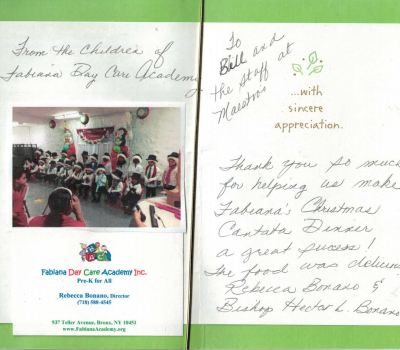 From the Children of
Fabiana Day Care Academy
Fabiana Day Care Academy Inc.
Pre-K for All
Rebecca Bonano, Director
(718) 588-4545
937 Teller Avenue, Bronx, NY 10451
www.FabianaAcademy.org
To
Bill and
the staff at
Maestros
...with
sincere
appreciation.
Thank you so much
for helping us make
Fabiana's Christmas
Cantata Dinner
a great success!
The food was delicious
Rebecca Bonano &
Bishop Hector L. Bonano